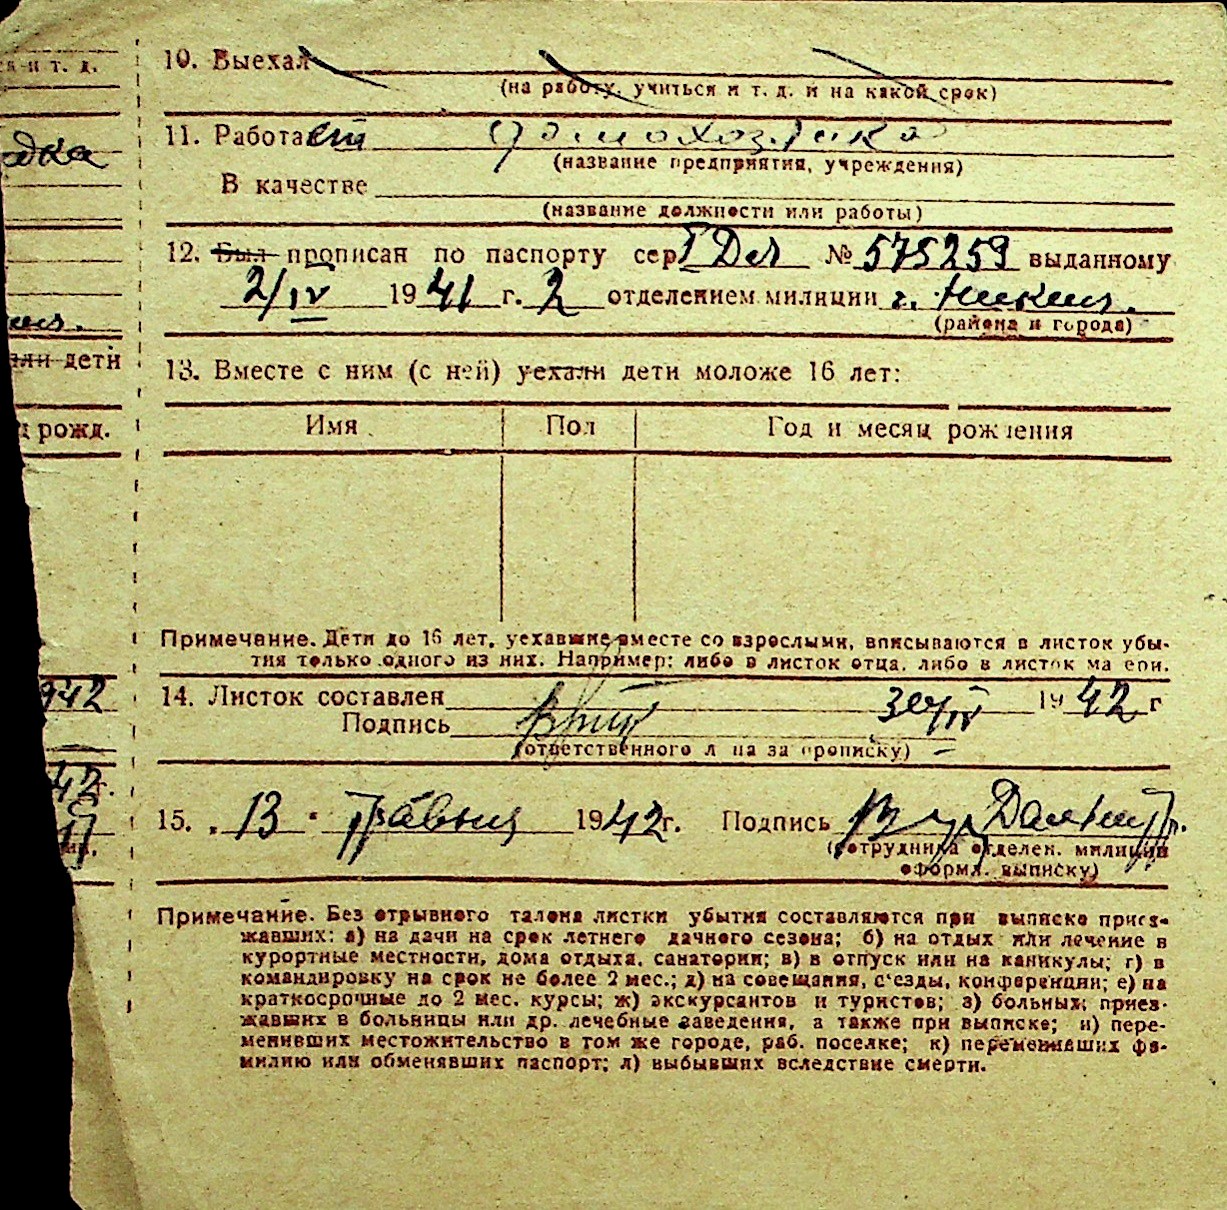 и т. д.
10. Выехал
(на работу, учиться и т. д. и на какой срок)
11. Работает домохозяйка
(название предприятия, учреждения)
В качестве
(название должности или работы)
12. Был прописан по паспорту сер № 575259 выданному
2/IV 1941 г. 2 отделением милиции г.
(района и города)
или дети
13. Вместе с ним (с ней) уехали дети моложе 16 лет:
рожд.
Имя Пол Год и месяц рождения
Примечание. Дети до 16 лет, уехавшие вместе со взрослыми, вписываются в листок убы-
тия только одного из них. Например: либо в листок отца, либо в листок матери.
942
14. Листок составлен 30/IV 1942 г
Подпись
(ответственного лица за прописку)
42 г.
15. „13" травня 1942 г. Подпись
(сотрудника отделен. милиции
оформл. выписку)
Примечание. Без отрывного талона листки убытия составляются при выписке приез-
жавших: а) на дачи на срок летнего дачного сезона; б) на отдых или лечение в
курортные местности, дома отдыха, санатории; в) в отпуск или на каникулы; г) в
командировку на срок не более 2 мес.; д) на совещания, с'езды, конференции; е) на
краткосрочные до 2 мес. курсы; ж) экскурсантов и туристов; з) больных, приез-
жавших в больницы или др. лечебные заведения, а также при выписке; и) пере-
менивших местожительство в том же городе, раб. поселке; к) переменивших фа-
милию или обменявших паспорт; л) выбывших вследствие смерти.